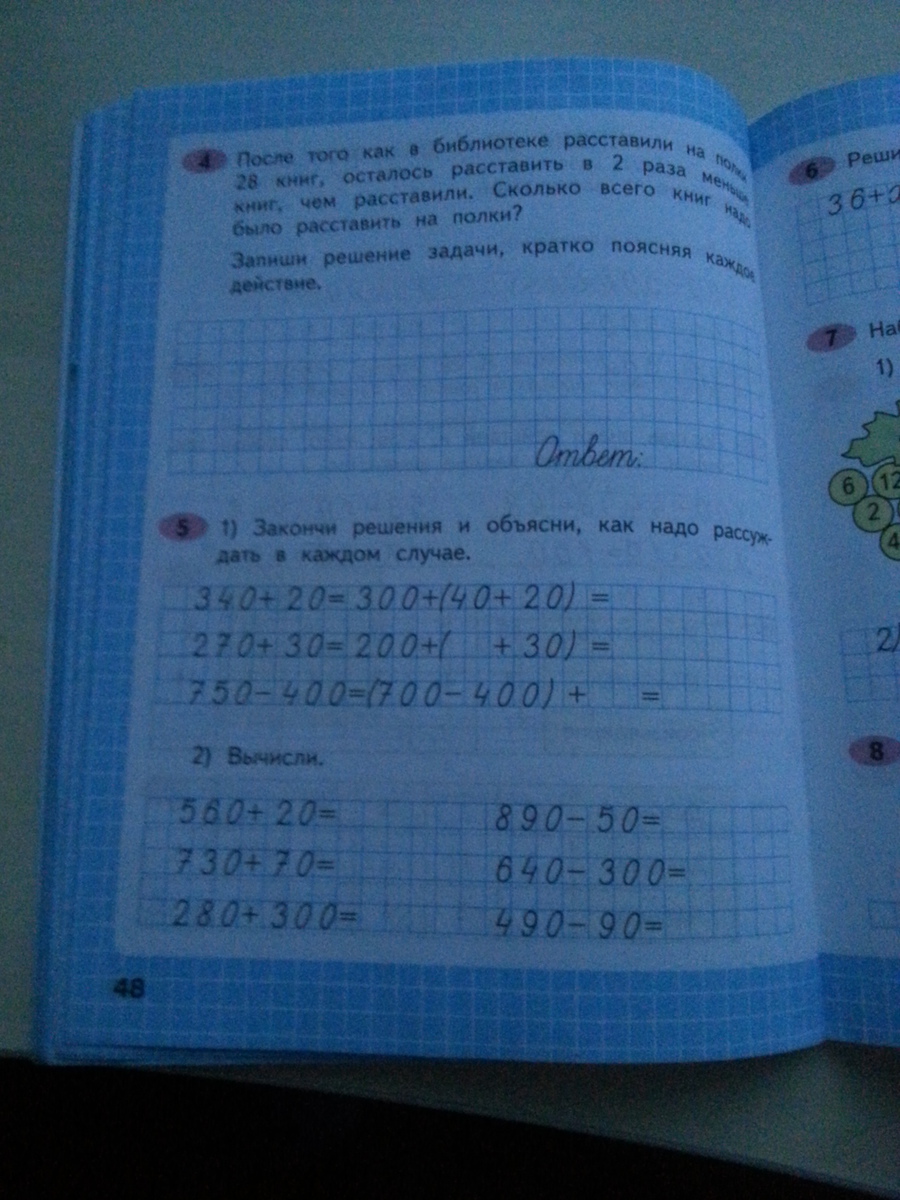 4 После того как в библиотеке расставили на полки
28 книг, осталось расставить в 2 раза меньше
книг, чем расставили. Сколько всего книг надо
было расставить на полки?
Запиши решение задачи, кратко поясняя каждое
действие.
Ответ:
5 1) Закончи решения и объясни, как надо рассуж-
дать в каждом случае.
340+ 20= 300+(40+ 20) =
270+ 30= 200+( + 30) =
750- 400=(700- 400) + =
2) Вычисли.
560+ 20= 890- 50=
730+ 70= 640- 300=
280+ 300= 490- 90=
48
6
36+
7
1)
6 12
2
4
2)
8